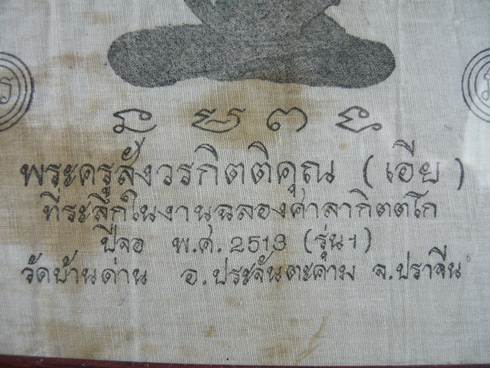 พระครูสังวรกิตติคุณ (เอีย)
ที่ระลึกในงานฉลองศาลากิตตโก
ปีจอ พ.ศ. 2513 (รุ่น๑)
วัดบ้านด่าน อ.ประจันตะคาม จ.ปราจีน